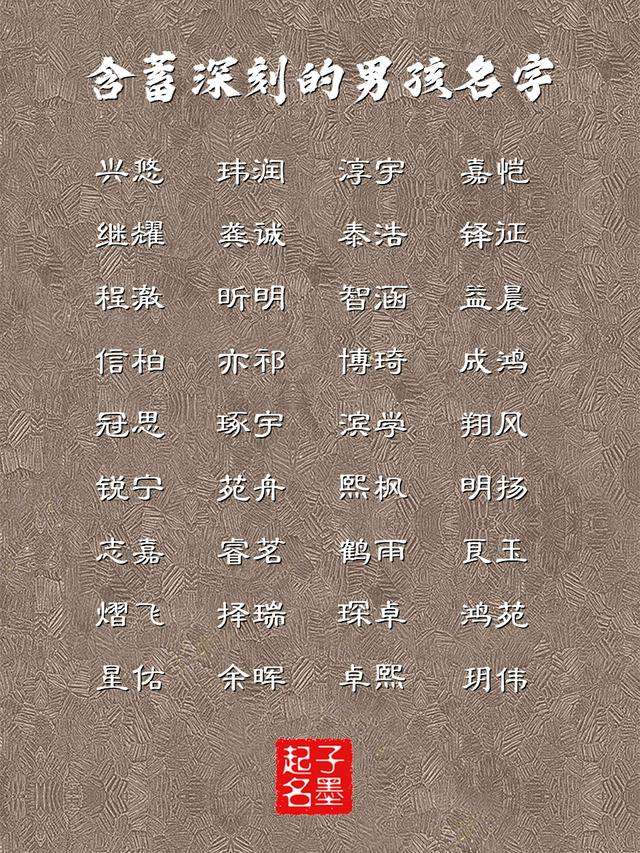 含蓄深刻的男孩名字
兴悠 玮润 淳宇 嘉恺
继耀 龚诚 泰浩 铎征
程澈 昕明 智涵 益晨
信柏 亦祁 博琦 成鸿
冠思 琢宇 滨学 翔风
锐宁 苑舟 熙枫 明扬
志嘉 睿茗 鹤雨 良玉
熠飞 择瑞 琛卓 鸿苑
星佑 余晖 卓熙 玥伟
子墨
起名